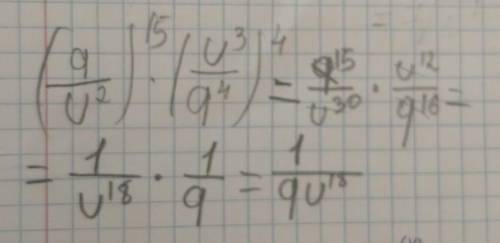 (q/υ²)¹⁵ · (υ³/q⁴)⁴ = q¹⁵/υ³⁰ · υ¹²/q¹⁶ =
= 1/υ¹⁸ · 1/q = 1/qυ¹⁸